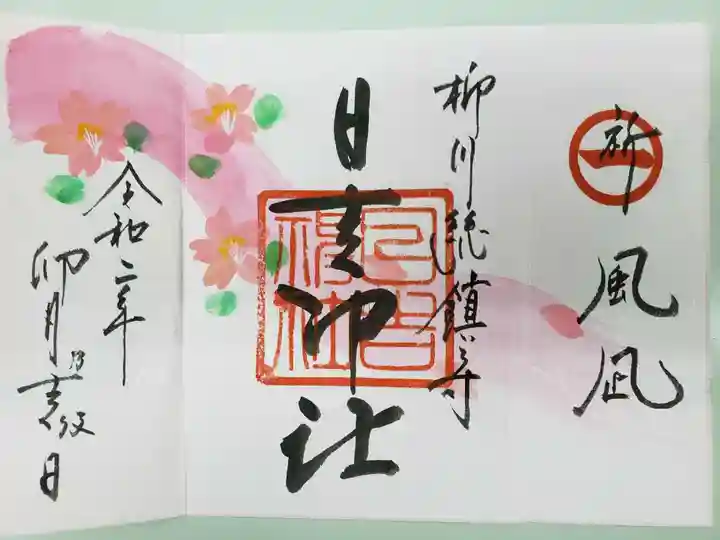 祈
風凪
柳川総鎮守
日吉神社
日吉
神社
令和二年
卯月乃吉日